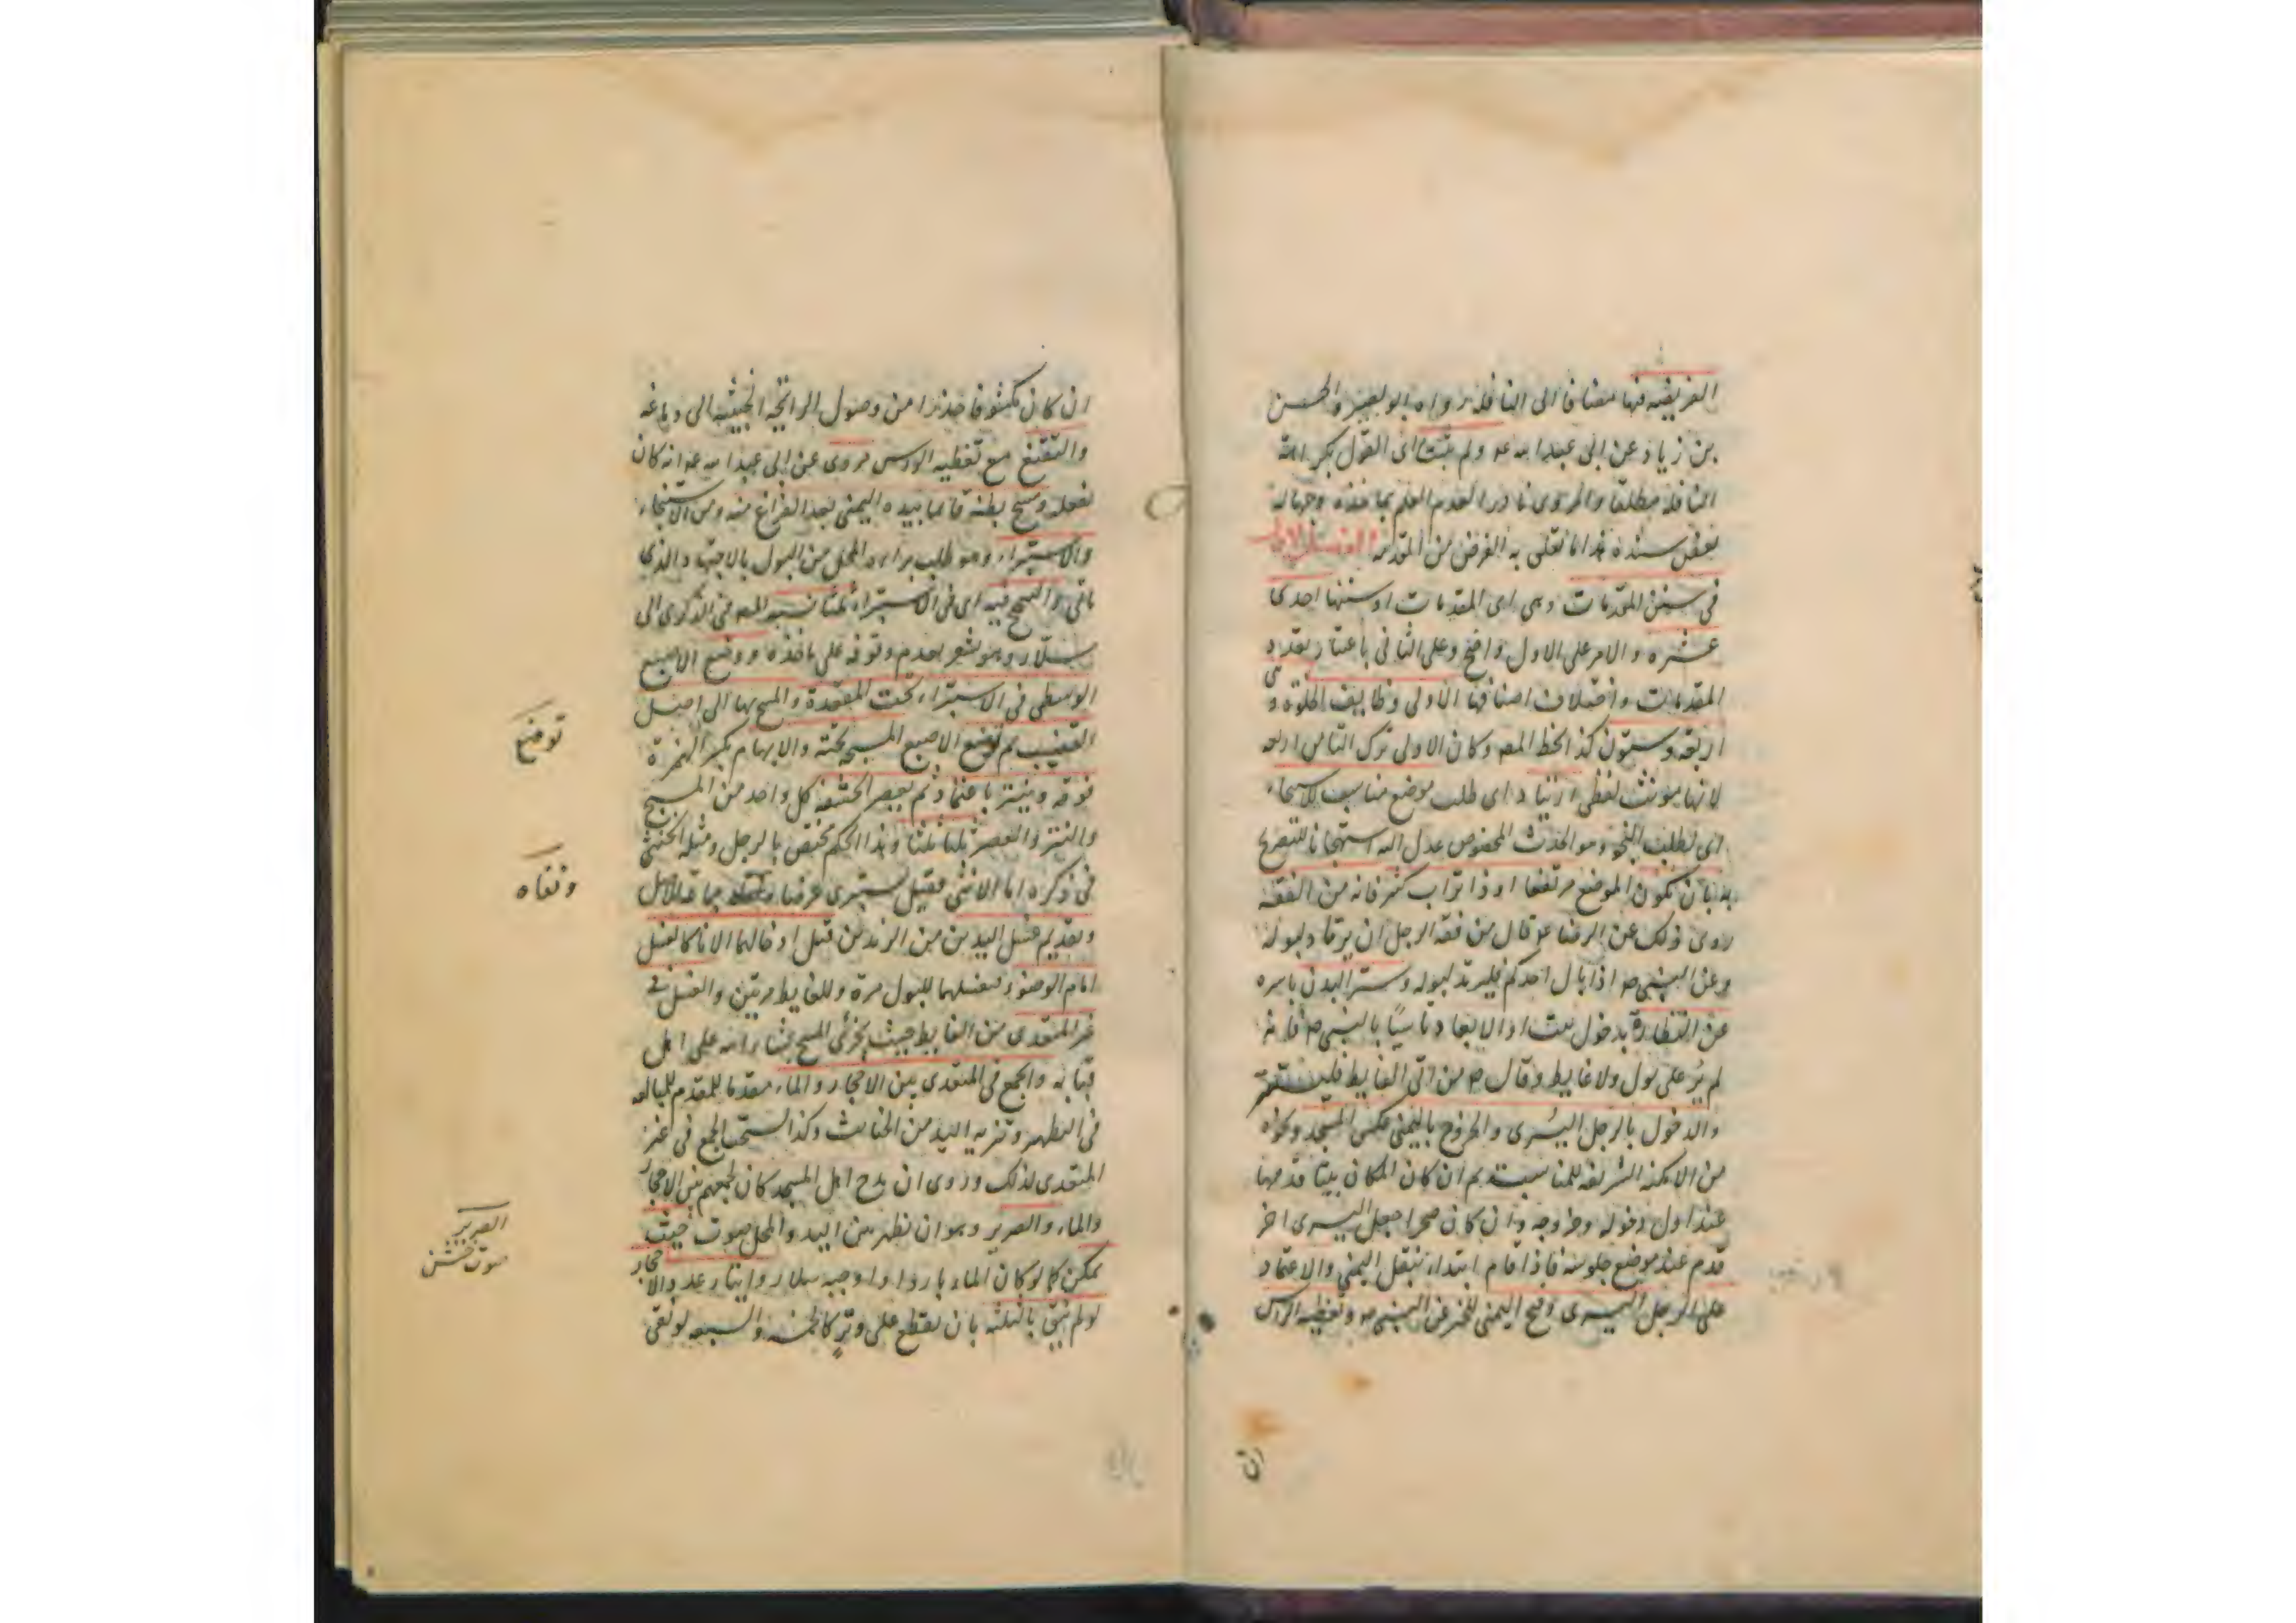 الفريضه فيها مضافا الى النافلة رواه ابو بصير والحسن
بن زياد عن ابى عبد الله ع ولم يثبت اى القول بكراهة
النافله مطلقا والمروى نادرا لعدم العلم بماخذه وجهالة
بعض سنده هذا ما تعلق به الغرض من المقدمه الفصل الاول
فى سنن المقدمات وهى اى المقدمات او سننها احدى
عشره والامر على الاول واضح وعلى الثانى باعتبار تعدد
المقدمات واختلاف اصنافها الاولى وظايف الخلوة وهى
اربعة وستون كذا بخط المصه وكان الاولى ترك التا من اربعه
لانها مونث لفظى ارتياد اى طلب موضع مناسب للاستنجاء
اى لطلب النجو وهو الحدث المخصوص عدل اليه استهجانا للتصريح
به بان يكون الموضع مرتفعا او ذا تراب كثير فانه من الفقه
روى ذلك عن الرضا ع قال من فقه الرجل ان يرتاد لبوله
وعن النبى ص اذا بال احدكم فليرتد لبوله وستر البدن باسره
عن النظارة بدخول بيت او الابعاد تاسيًا بالنبى ص فانه
لم يُر على بول ولا غايط وقال ص من اتى الغايط فليستتر
والدخول بالرجل اليُسرى والخروج باليمنى عكس المسجد ونحوه
من الامكنه الشريفه للمناسبة ثم ان كان المكان بيتا قدمها
عند اول دخوله وخروجه وان كان صحرا جعل اليسرى اخر
قدم عند موضع جلوسه فاذا قام ابتداء بنقل اليمنى والاعتماد
على الرجل اليسرى وفتح اليمنى للخبر عن النبى ص وتغطيه الراس
ان
ان كان مكشوفا حذرا من وصول الرائحه الخبيثه الى دماغه
والتقنع مع تغطيه الراس مروى عن ابى عبد الله ع انه كان
يفعله ومسح بطنه قائما بيده اليمنى بعد الفراغ منه ومن الاستنجاء
والاستبراء وهو طلب براءه المحل من البول بالاجتهاد الذى
ياتى والتنحنح فيه اى فى الاستبراء ثلثا نسبه المصه فى الذكرى الى
سلّار وهو يشعر بعدم وقوفه على ماخذه ووضع الاصبع
الوسطى فى الاستبراء تحت المقعدة والمسح بها الى اصل
القضيب ثم توضع الاصبع المسبحه تحته والابهام بكسر الهمزة
فوقه وينتر باعتماد ثم يعصر الحشفه كل واحد من المسح
والنتر والعصر ثلثا ثلثا وهذا الحكم مختص بالرجل ومثله الخنثى
فى ذكره اما الانثى فقيل تستبرى عرضا ونفاه جماعه للاصل
وتقديم غسل اليدين من الزندين قبل ادخالهما الانا كالغسل
امام الوضوء فيغسلهما للبول مرة وللغايط مرتين والغسل فى
غير المتعدى من الغايط حيث يجزئ المسح لثنا الله على اهل
قبا به والجمع فى المتعدى بين الاحجار والماء مقدما للمقدم للمبالغه
فى التطهير وتنزيه اليد من الخبائث وكذا يستحب الجمع فى غير
المتعدى لذلك وروى ان مدح اهل المسجد كان لجمعهم بين الاحجار
والماء والصرير وهو ان يظهر من اليد والمحل صوت حيث
يمكن كما لو كان الماء باردا واوجبه سلار وايتار عدد الاحجار
لو لم ينق بالثلثه بان يقطع على وتر كالخمسه والسبعه لو نقى
توضع
ونفاه
الصرير
صوت خشن